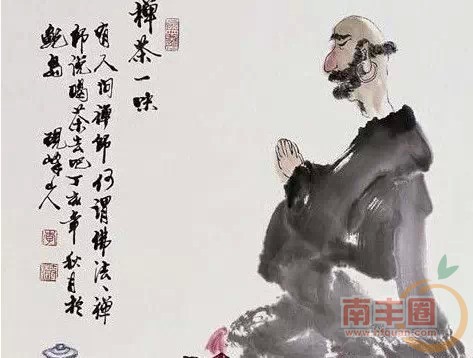 禪茶一味
有人问禪师何谓佛法、禪
师说喝茶去吧丁亥年秋月於
鲍岛 砚峰山人
南丰圈